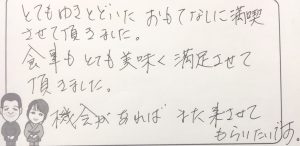 とてもゆきとどいた おもてなしに満喫
させて頂きました。
食事もとても美味く満足させて
頂きました。
機会があれば また来させて
もらいたいです。